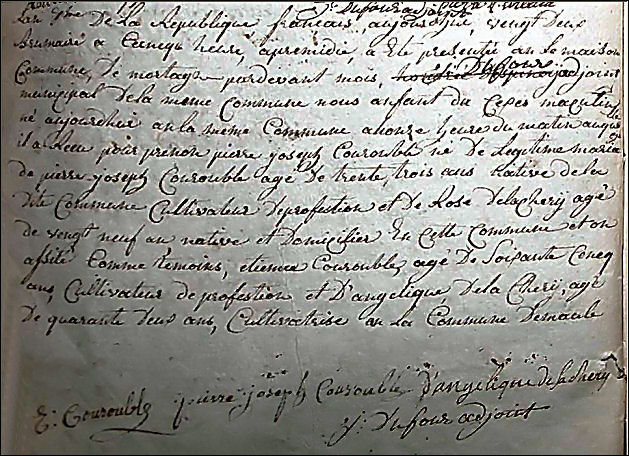 De La République français aujourdhui, vingt deux
brumaire a Cencq heure, apremidie, a Ete presenté an le maison
Commune, De mortagn pardevant mois, Dufour adjoint
municipal Dela meme Commune nous anfant du Cexes maqutin
né aujourdhui an la meme Commune a honze heure du matin auquel
il a Eceu pour prenon pierre joseph Courouble né De Legitime maria
de pierre joseph Courouble agé De trente, trois ans Native dela
dite Commune Cultivateur Deprofestion et De Rose Delachery agé
de vengt neuf an native et Domicilier En cette Commune et on
assité Comme temoins, etienne Courouble, agé De Soixante Cencq
ans, Cultivateur de profestion et D'angelique de la Cheri, agé
De quarante Deux ans, Cultivatrise an La Commune Demaule
E: Courouble pierre joseph Courouble D'angelique delachery
Dufour adjoint